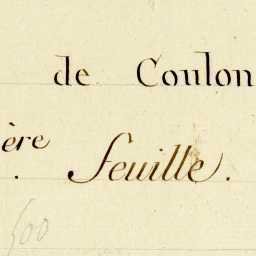 de Coulon
ère feuille.
500